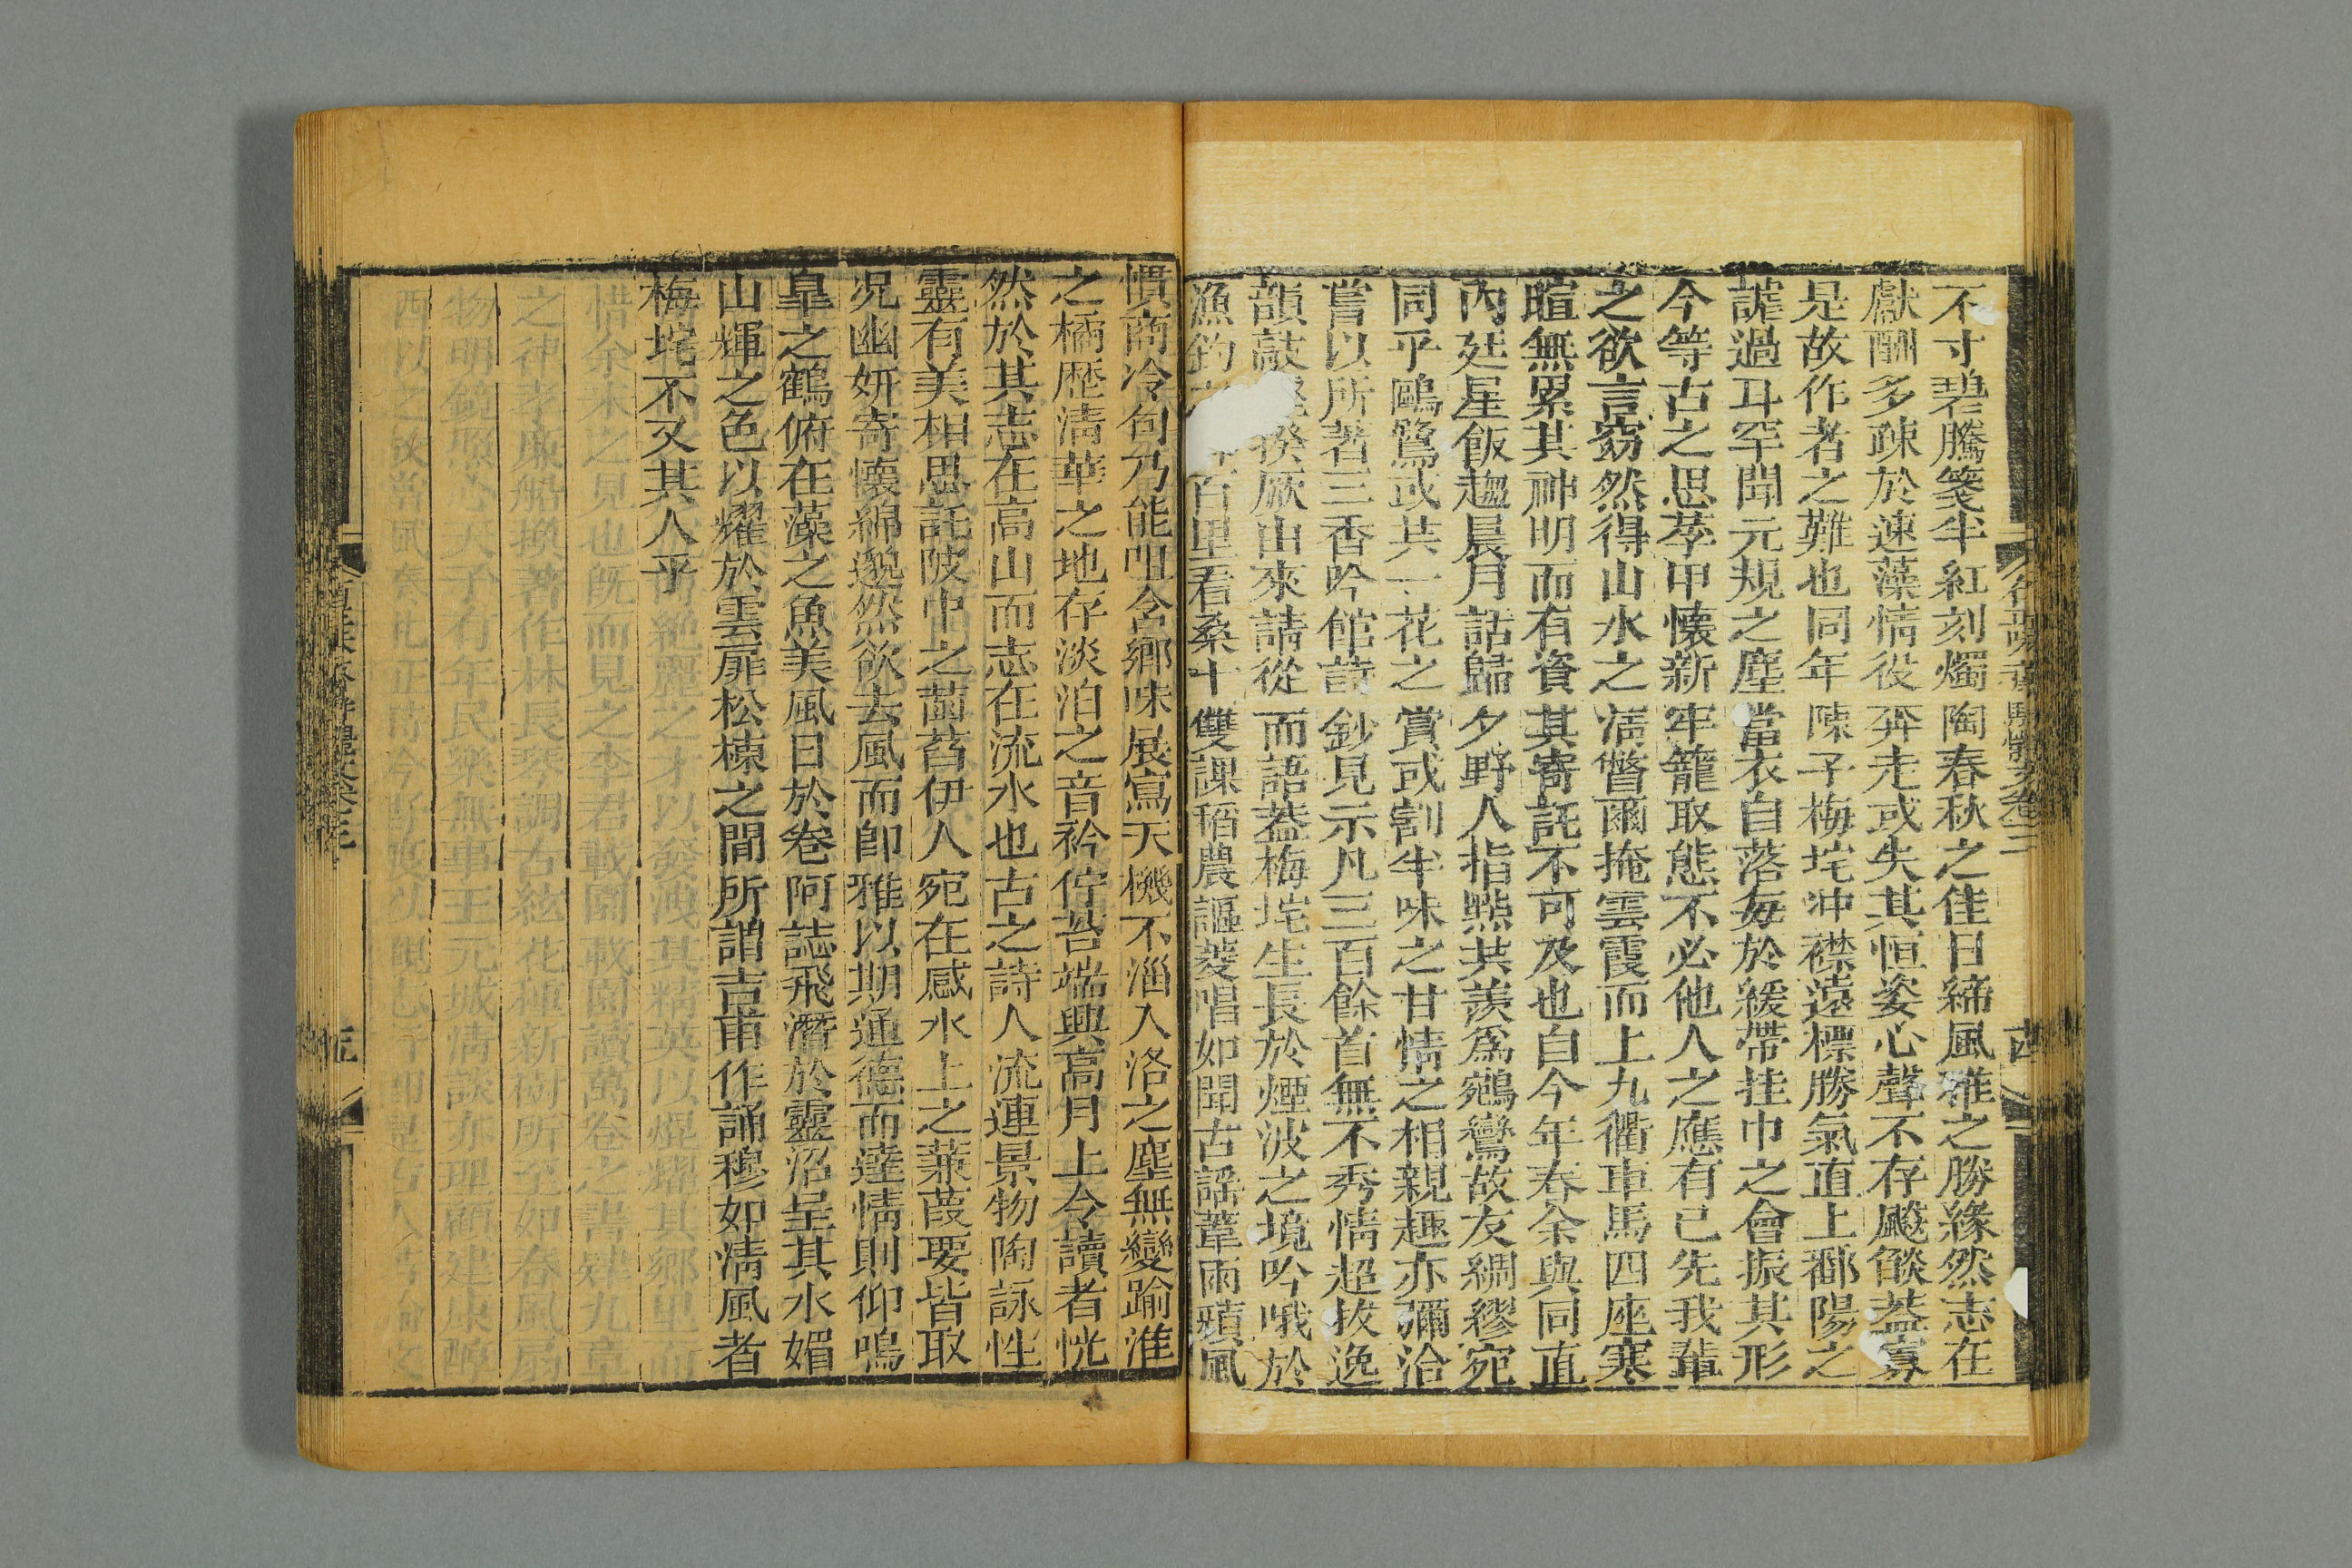 不寸碧騰箋半紅刻燭陶春秋之佳日締風雅之勝緣然志在
獻酬多疎於速藻情役奔走或失其恒姿心聲不存飈燄蓋寡
是故作者之難也同年陳子梅垞沖襟遠標勝氣直上鄱陽之
謔過耳罕聞元規之塵當衣自落每於緩帶挂巾之會振其形
今等古之思莩甲懷新牢籠取態不必他人之應有已先我輩
之欲言窈然得山水之淸瞥爾掩雲霞而上九衢車馬四座寒
暄無累其神明而有資其寄託不可及也自今年春余與同直
內廷星飯趨晨月話歸夕野人指點共羨爲鵷鸞故友綢繆宛
同乎鷗鷺或共一花之賞或割半味之甘情之相親趣亦彌洽
嘗以所著三香吟館詩鈔見示凡三百餘首無不秀情超拔逸
韻敲 揆厥由來請從而語蓋梅垞生長於煙波之境吟哦於
漁釣 百里看桑十雙課稻農謳菱唱如聞古謠葦雨蘋風
慣商冷句乃能咀含鄉味展寫天機不淄入洛之塵無變踰淮
之橘歷淸華之地存淡泊之音衿佇苔端興高月上令讀者恍
然於其志在高山而志在流水也古之詩人流連景物陶詠性
靈有美相思託陂中之菌萏伊人宛在感水上之蒹葭要皆取
况幽妍寄懷綿邈然欲去風而卽雅以期通德而達情則仰鳴
皐之鶴俯在藻之魚美風日於卷阿誌飛潛於靈沼呈其水媚
山輝之色以耀於雲扉松棟之間所謂吉甫作誦穆如淸風者
梅垞不又其人乎